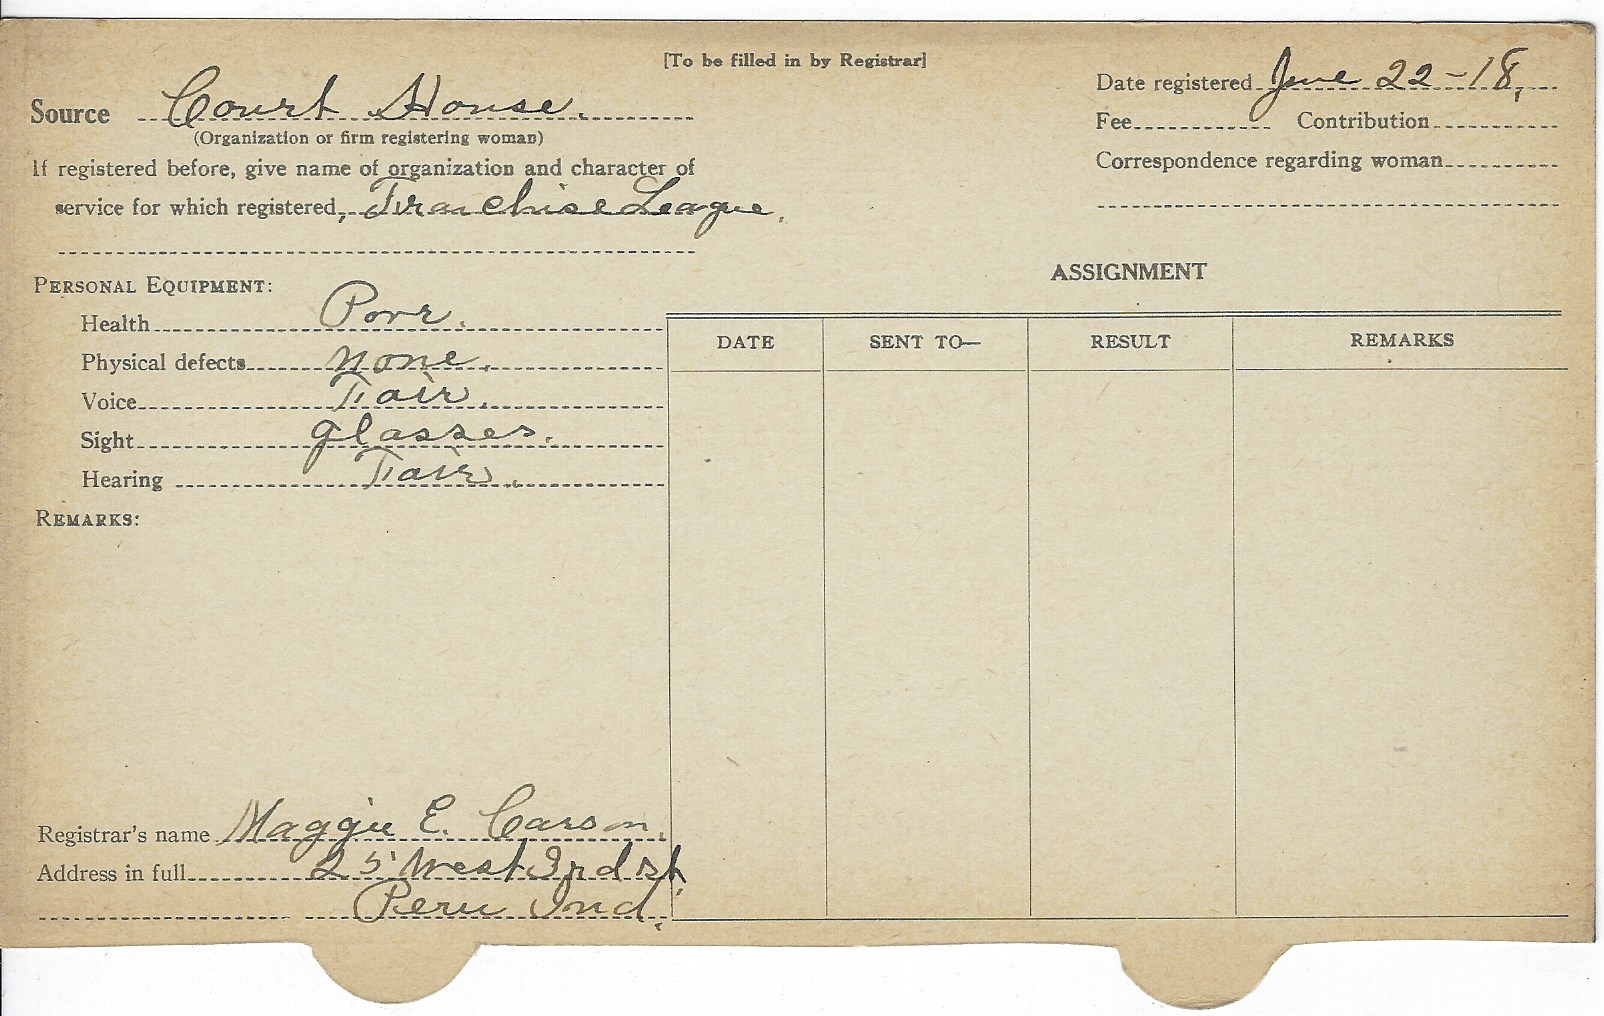 [To be filled in by Registrar]
Source Court House.
(Organization or firm registering woman)
If registered before, give name of organization and character of
service for which registered, Franchise League.
Date registered June 22-18,
Fee Contribution
Correspondence regarding woman
PERSONAL EQUIPMENT:
Health Poor.
Physical defects none.
Voice Fair.
Sight glasses.
Hearing Fair.
REMARKS:
ASSIGNMENT
DATE SENT TO— RESULT REMARKS
Registrar's name Maggie E. Carson.
Address in full 25 West 3rd St.
Peru Ind.